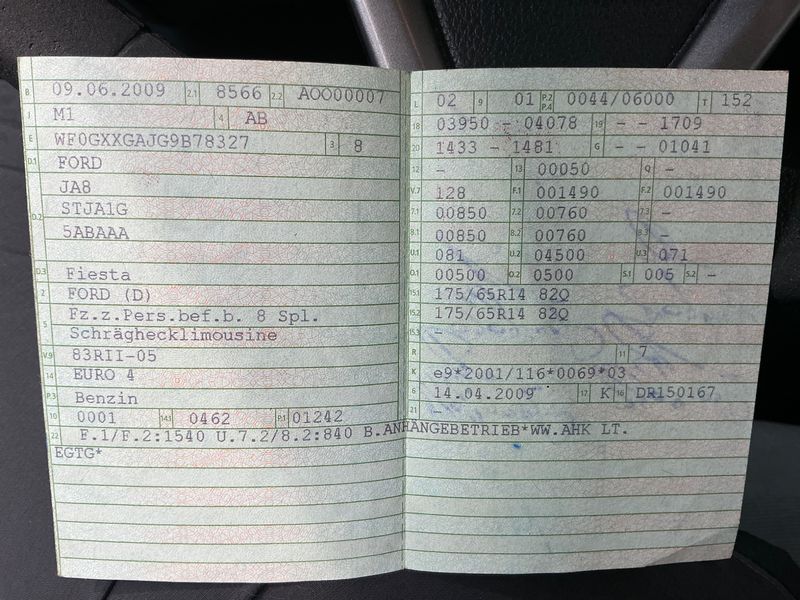 B 09.06.2009 2.1 8566 2.2 AOO00007
J M1 4 AB
E WF0GXXGAJG9B78327 3 8
D.1 FORD
JA8
D.2 STJA1G
5ABAAA
D.3 Fiesta
2 FORD (D)
5 Fz.z.Pers.bef.b. 8 Spl.
Schräghecklimousine
V.9 83RII-05
14 EURO 4
P.3 Benzin
10 0001 14.1 0462 P.1 01242
22 F.1/F.2:1540 U.7.2/8.2:840 B.ANHÄNGEBETRIEB*WW.AHK LT.
EGTG*
L 02 9 01 P.2 P.4 0044/06000 T 152
18 03950 - 04078 19 - - 1709
20 1433 - 1481 G - - 01041
12 - 13 00050 Q -
V.7 128 F.1 001490 F.2 001490
7.1 00850 7.2 00760 7.3 -
8.1 00850 8.2 00760 8.3 -
U.1 081 U.2 04500 U.3 071
O.1 00500 O.2 0500 S.1 005 S.2 -
15.1 175/65R14 82Q
15.2 175/65R14 82Q
15.3 -
R 11 7
K e9*2001/116*0069*03
6 14.04.2009 17 K 16 DR150167
21 -